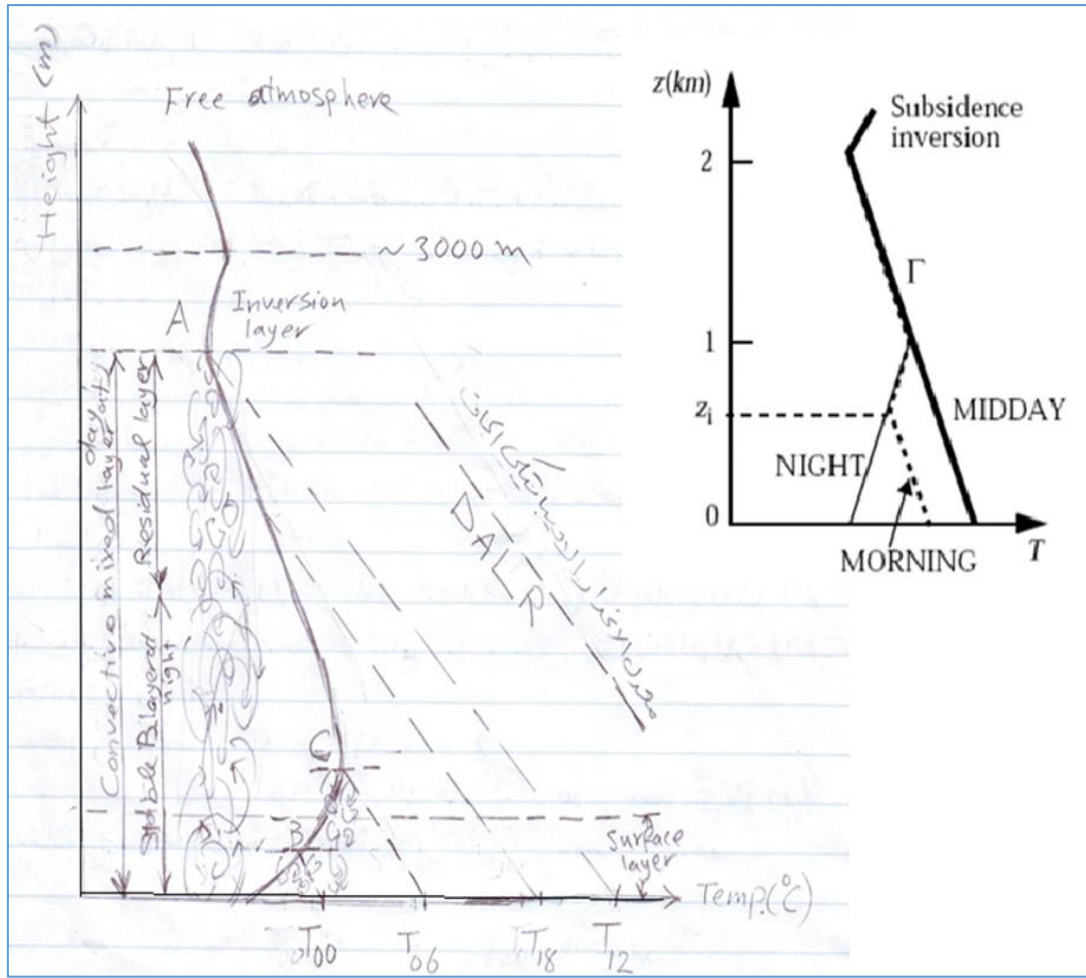 Height (m)
Free atmosphere
~ 3000 m
A
Inversion
layer
Convective mixed layer
day
Residual layer
Stable B. layer
night
DALR
C
B
Surface
layer
Temp.(°C)
T00
T06
T18
T12
z(km)
Subsidence
inversion
2
Γ
1
zi
MIDDAY
NIGHT
0
T
MORNING